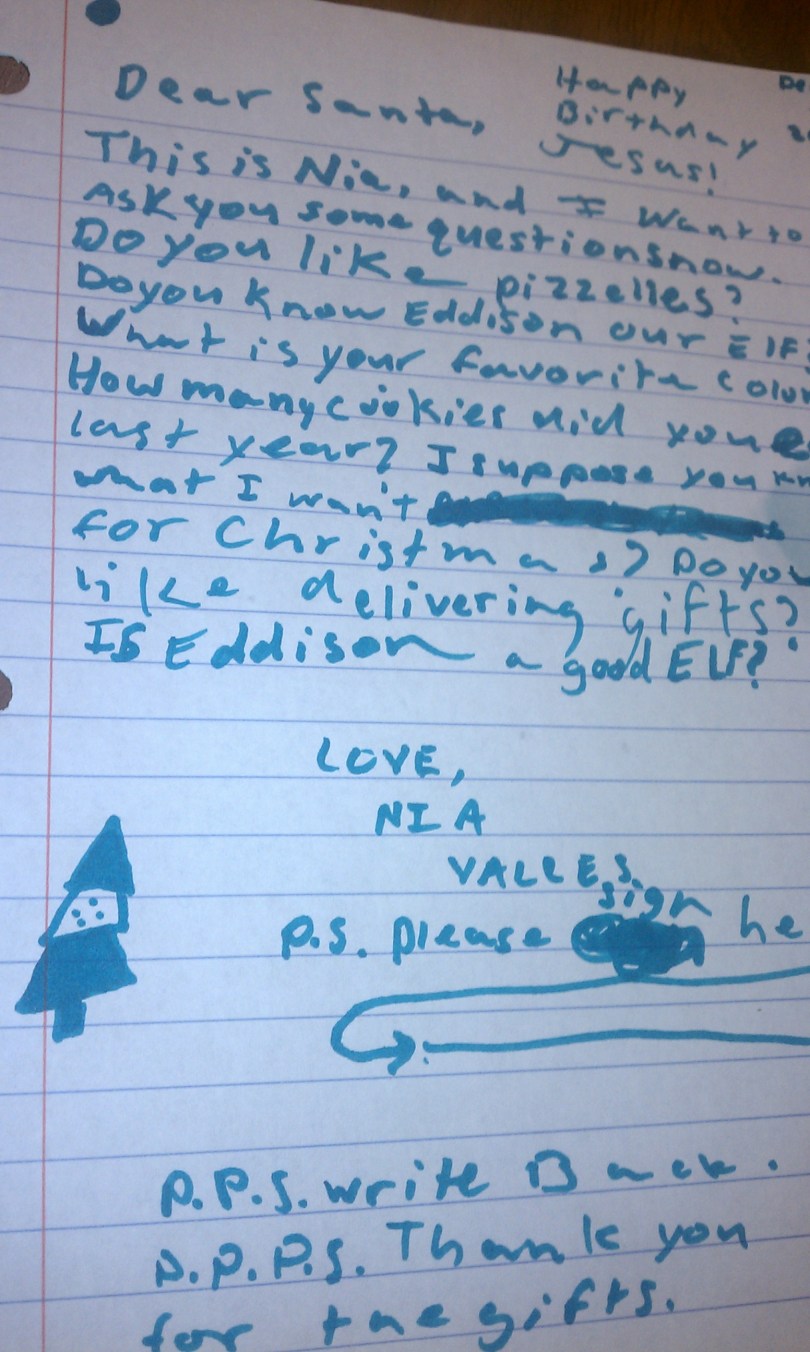 Dear Santa,
Happy
Birthday
Jesus!
De
This is Nia, and I want to
Ask you some questions now.
Do you like pizzelles?
Do you know Eddison our Elf?
What is your favorite colou
How many cookies did you e
last year? I suppose you kn
what I wan't
for Christmas? Do you
like delivering gifts?
Is Eddison a good ELF?
LOVE,
NIA
VALLES.
P.S. please sign he
P.P.S. write Back.
P.P.P.S. Thank you
for the gifts.